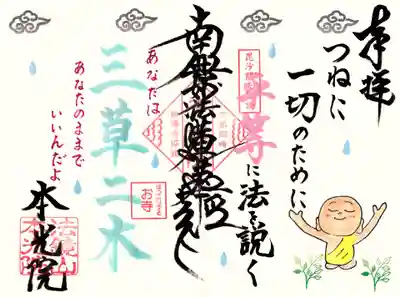 奉拝
つねに
一切のために
平等に法を説く
南無妙法蓮華経
あなたは
三草二木
お寺
あなたのままで
いいんだよ
本光院